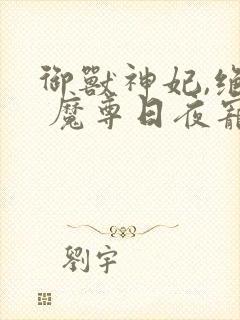 御獸神妃,绝
魔尊日夜寵
劉宇